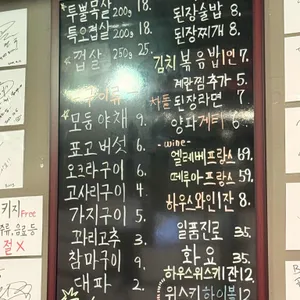 투뿔목살 200g 18.
특오겹살 200g 18.
껍살 250g 25.
모둠야채 9.
표고버섯 6.
오크라구이 6.
고사리구이 4.
가지구이 5.
꽈리고추 4.
참마구이 6.
대파 2.
된장술밥 8.
된장찌개 8.
김치볶음밥 1인 7.
계란찜추가 5.
차돌된장라면 7.
양파게티 6.
-wine-
엘레베프랑스 69.
떼루아프랑스 59.
하우스와인1잔 8.
일품진로 35.
화요 35.
하우스위스키1잔 12
위스키하이볼 12
키지 Free
주류, 음료 등
절 X